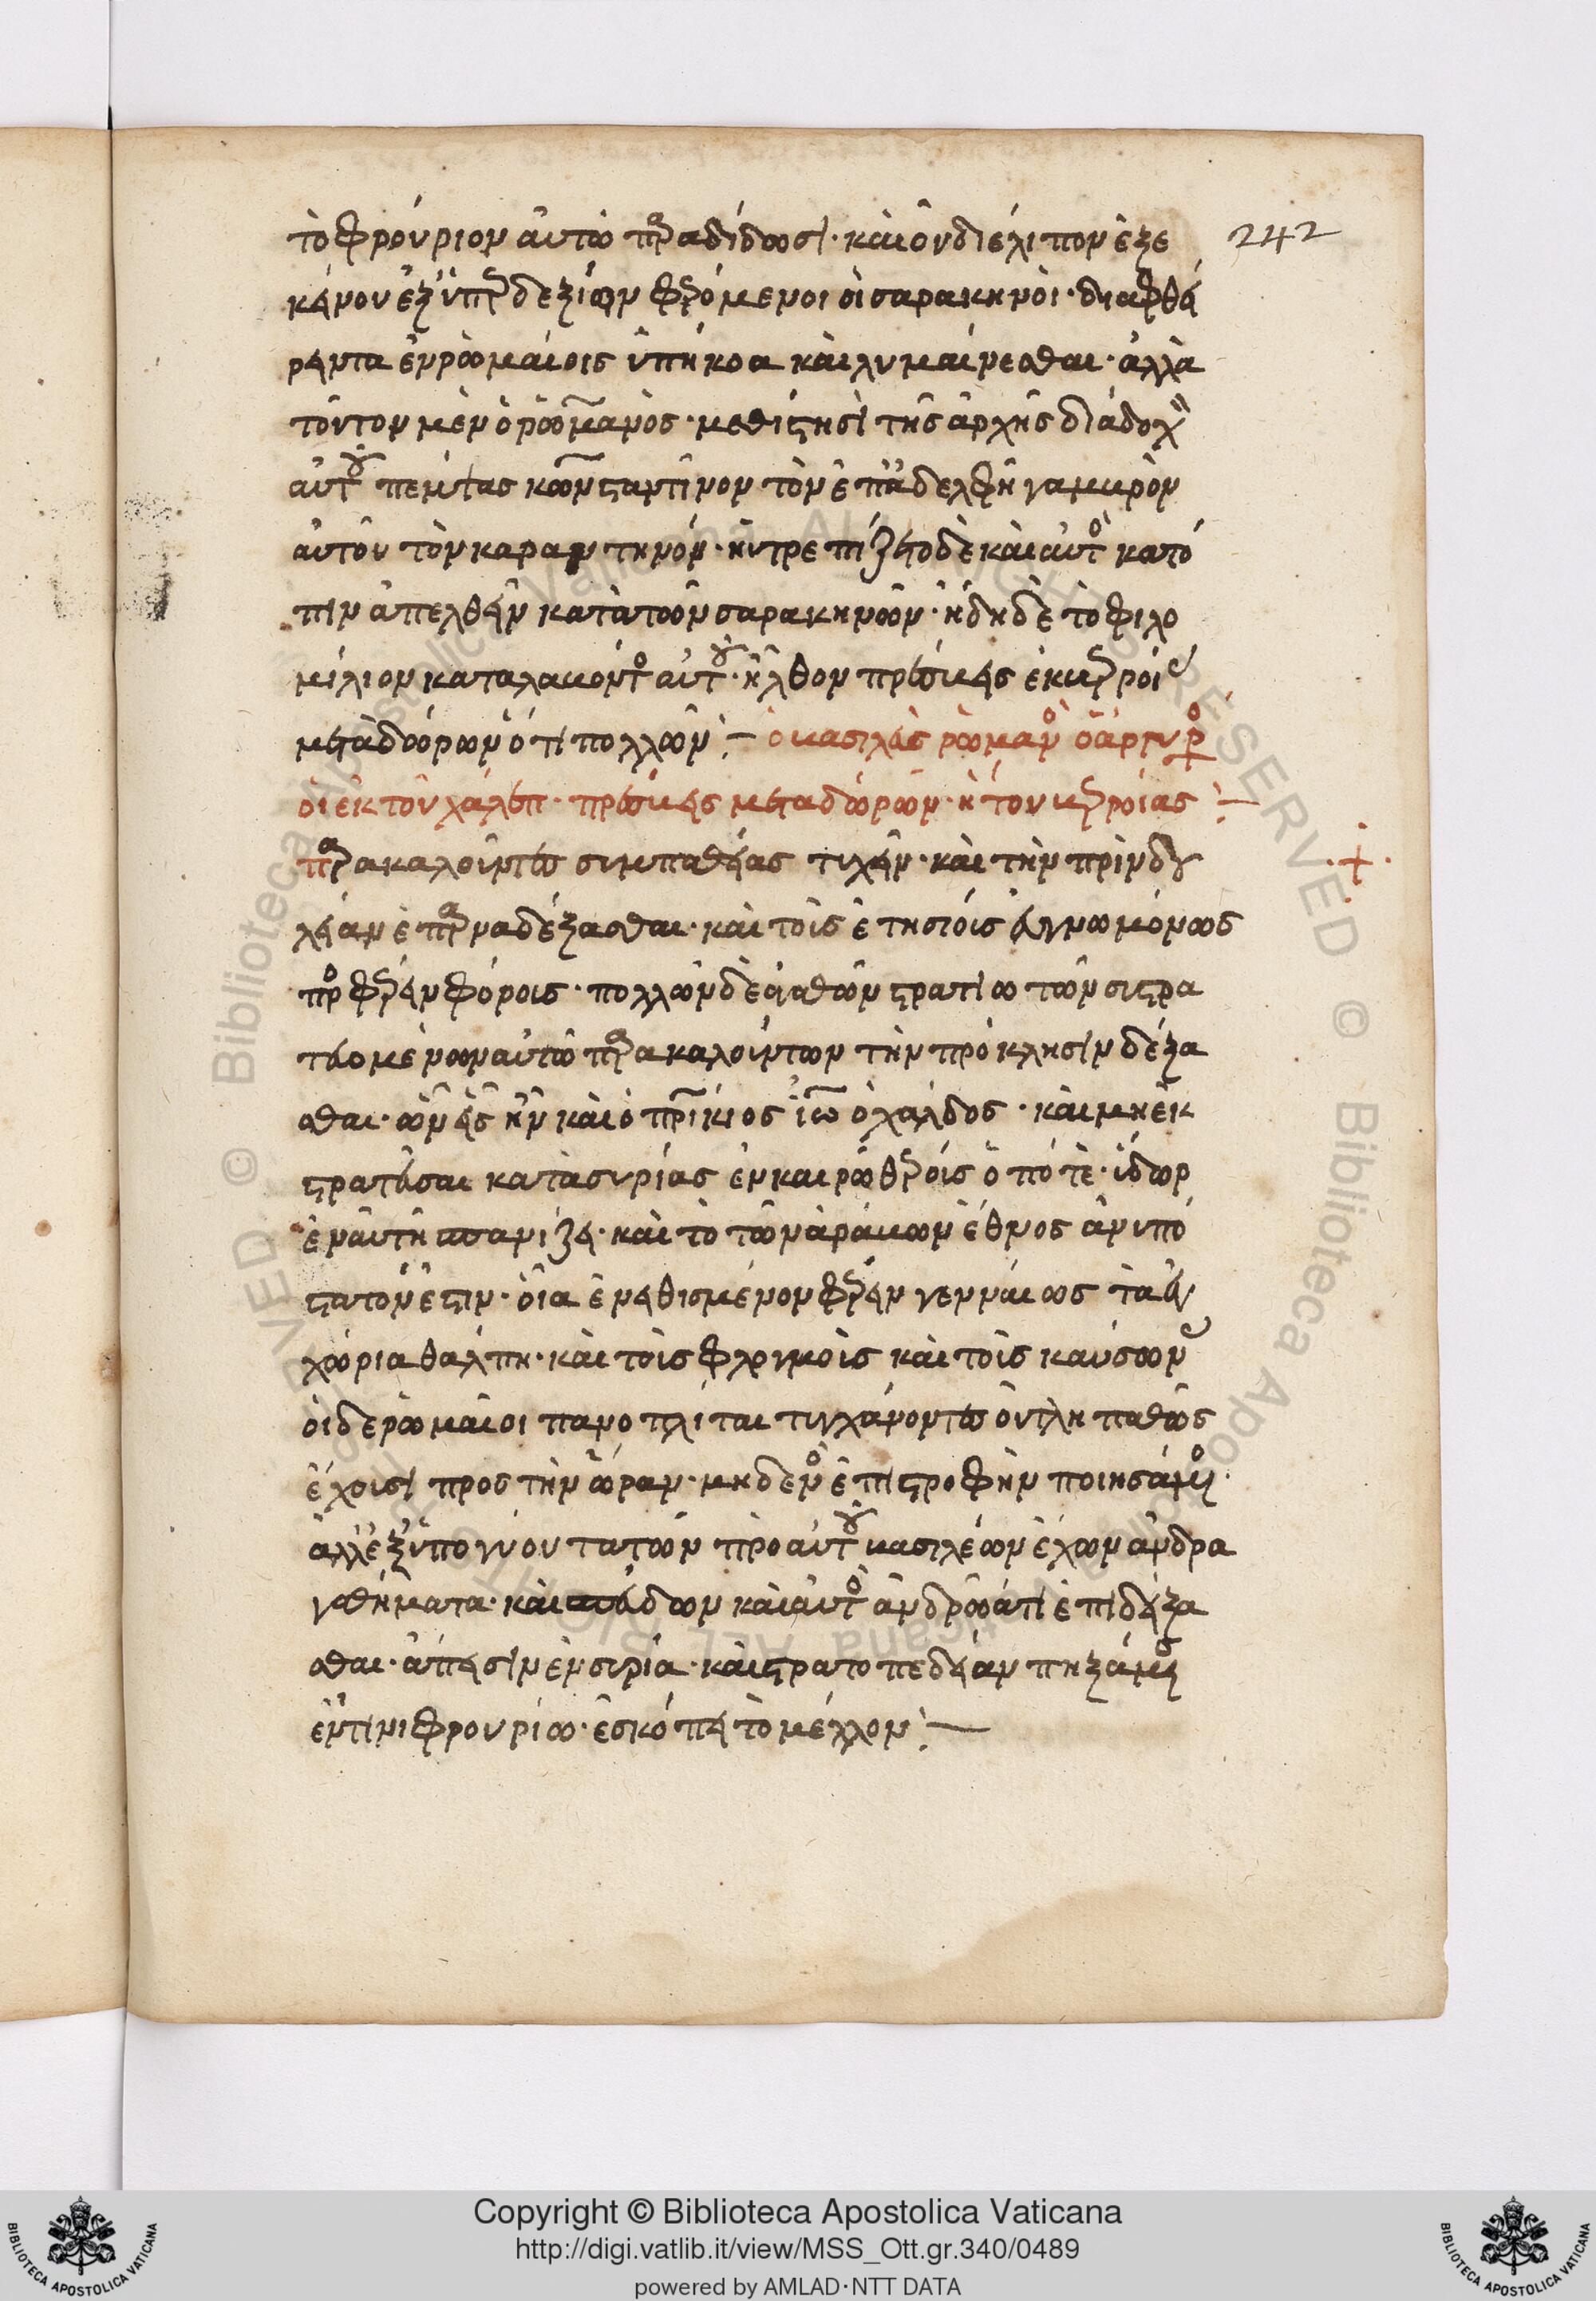 τὸ φρούριον αὐτῶ παραδίδωσι· καὶ οὐ διέλιπον ἐξ ἐ 242
κείνου ἐξ ὑπερδεξίων φερόμενοι οἱ σαρακηνοὶ· διαφθεί
ρειν τα ἐν ῥωμαίοις ὑπήκοα καὶ λυμαίνεσθαι· ἀλλὰ
τοῦτον μὲν ὁ ῥωμανὸς· μεθίστησι τῆς ἀρχῆς διάδοχον
αὐτοῦ πέμψας κωνσταντῖνον τὸν ἐπ ἀδελφῆ γαμβρὸν
αὐτοῦ τὸν καραντηνόν· ηὐτρεπίζετο δὲ καὶ αὐτὸς κατό
πιν ἀπελθεῖν κατὰ τῶν σαρακηνῶν· ἤδη δὲ τὸ φιλο
μίλιον καταλαβόντος αὐτοῦ· ἦλθον πρέσβεις ἐκ βερροίας
μετὰ δώρων ὅτι πολλῶν :— ὁ βασιλεὺς ῥωμανὸς ὁ ἀργυρὸς
οἱ ἐκ τοῦ χάλεπ· πρέσβεις μετὰ δώρων· ἤτου βερροίας :—
παρακαλοῦντες συμπαθείας τυχεῖν· καὶ τὴν πρὶν δου
λείαν ἐπαναδέξασθαι· καὶ τοῖς ἐτησίοις εὐγνωμόνως
προσφέρειν φόροις· πολλῶν δὲ ἀγαθῶν στρατιωτῶν συστρα
τευομένων αὐτῶ παρακαλούντων τὴν πρόκλησιν δέξα
σθαι· ὧν εἷς ἦν καὶ ὁ πρίκιος ἰω ὁ χάλδος· καὶ μὴ ἐκ
στρατεῦσαι κατὰ συρίας ἐν καιρῶ θέροις ὁπότε· ὕδωρ
ἐν αὐτῆ σπανίζει· καὶ τὸ τῶν ἀράβων ἔθνος ἀνυπό
στατόν ἐστιν· οἷα ἐνειθισμένον φέρειν γενναίως τὰ ἐγ
χώρια θάλπη· καὶ τοῖς φλογμοῖς καὶ τοῖς καύσων
οἱ δε ῥωμαῖοι πανοπλίται τυγχάνοντες οὐ τληπαθῶς
ἔχουσι προς τὴν ὥραν· μηδεμίαν ἐπιστροφὴν ποιησάμενος·
ἀλλ ἐξ ὑπογύου τὰ τῶν πρὸ αὐτοῦ βασιλέων ἔχων ἀνδρα
γαθήματα· καὶ σπεύδων καὶ αὐτὸς ἀνδρῶόν τι ἐπιδείξα
σθαι· ἄπεισιν ἐν συρία· καὶ στρατοπεδείαν πηξάμενος
ἐν τινι φρουρίω· ἐσκόπει τὸ μέλλον :—
Copyright © Biblioteca Apostolica Vaticana
http://digi.vatlib.it/view/MSS_Ott.gr.340/0489
powered by AMLAD·NTT DATA